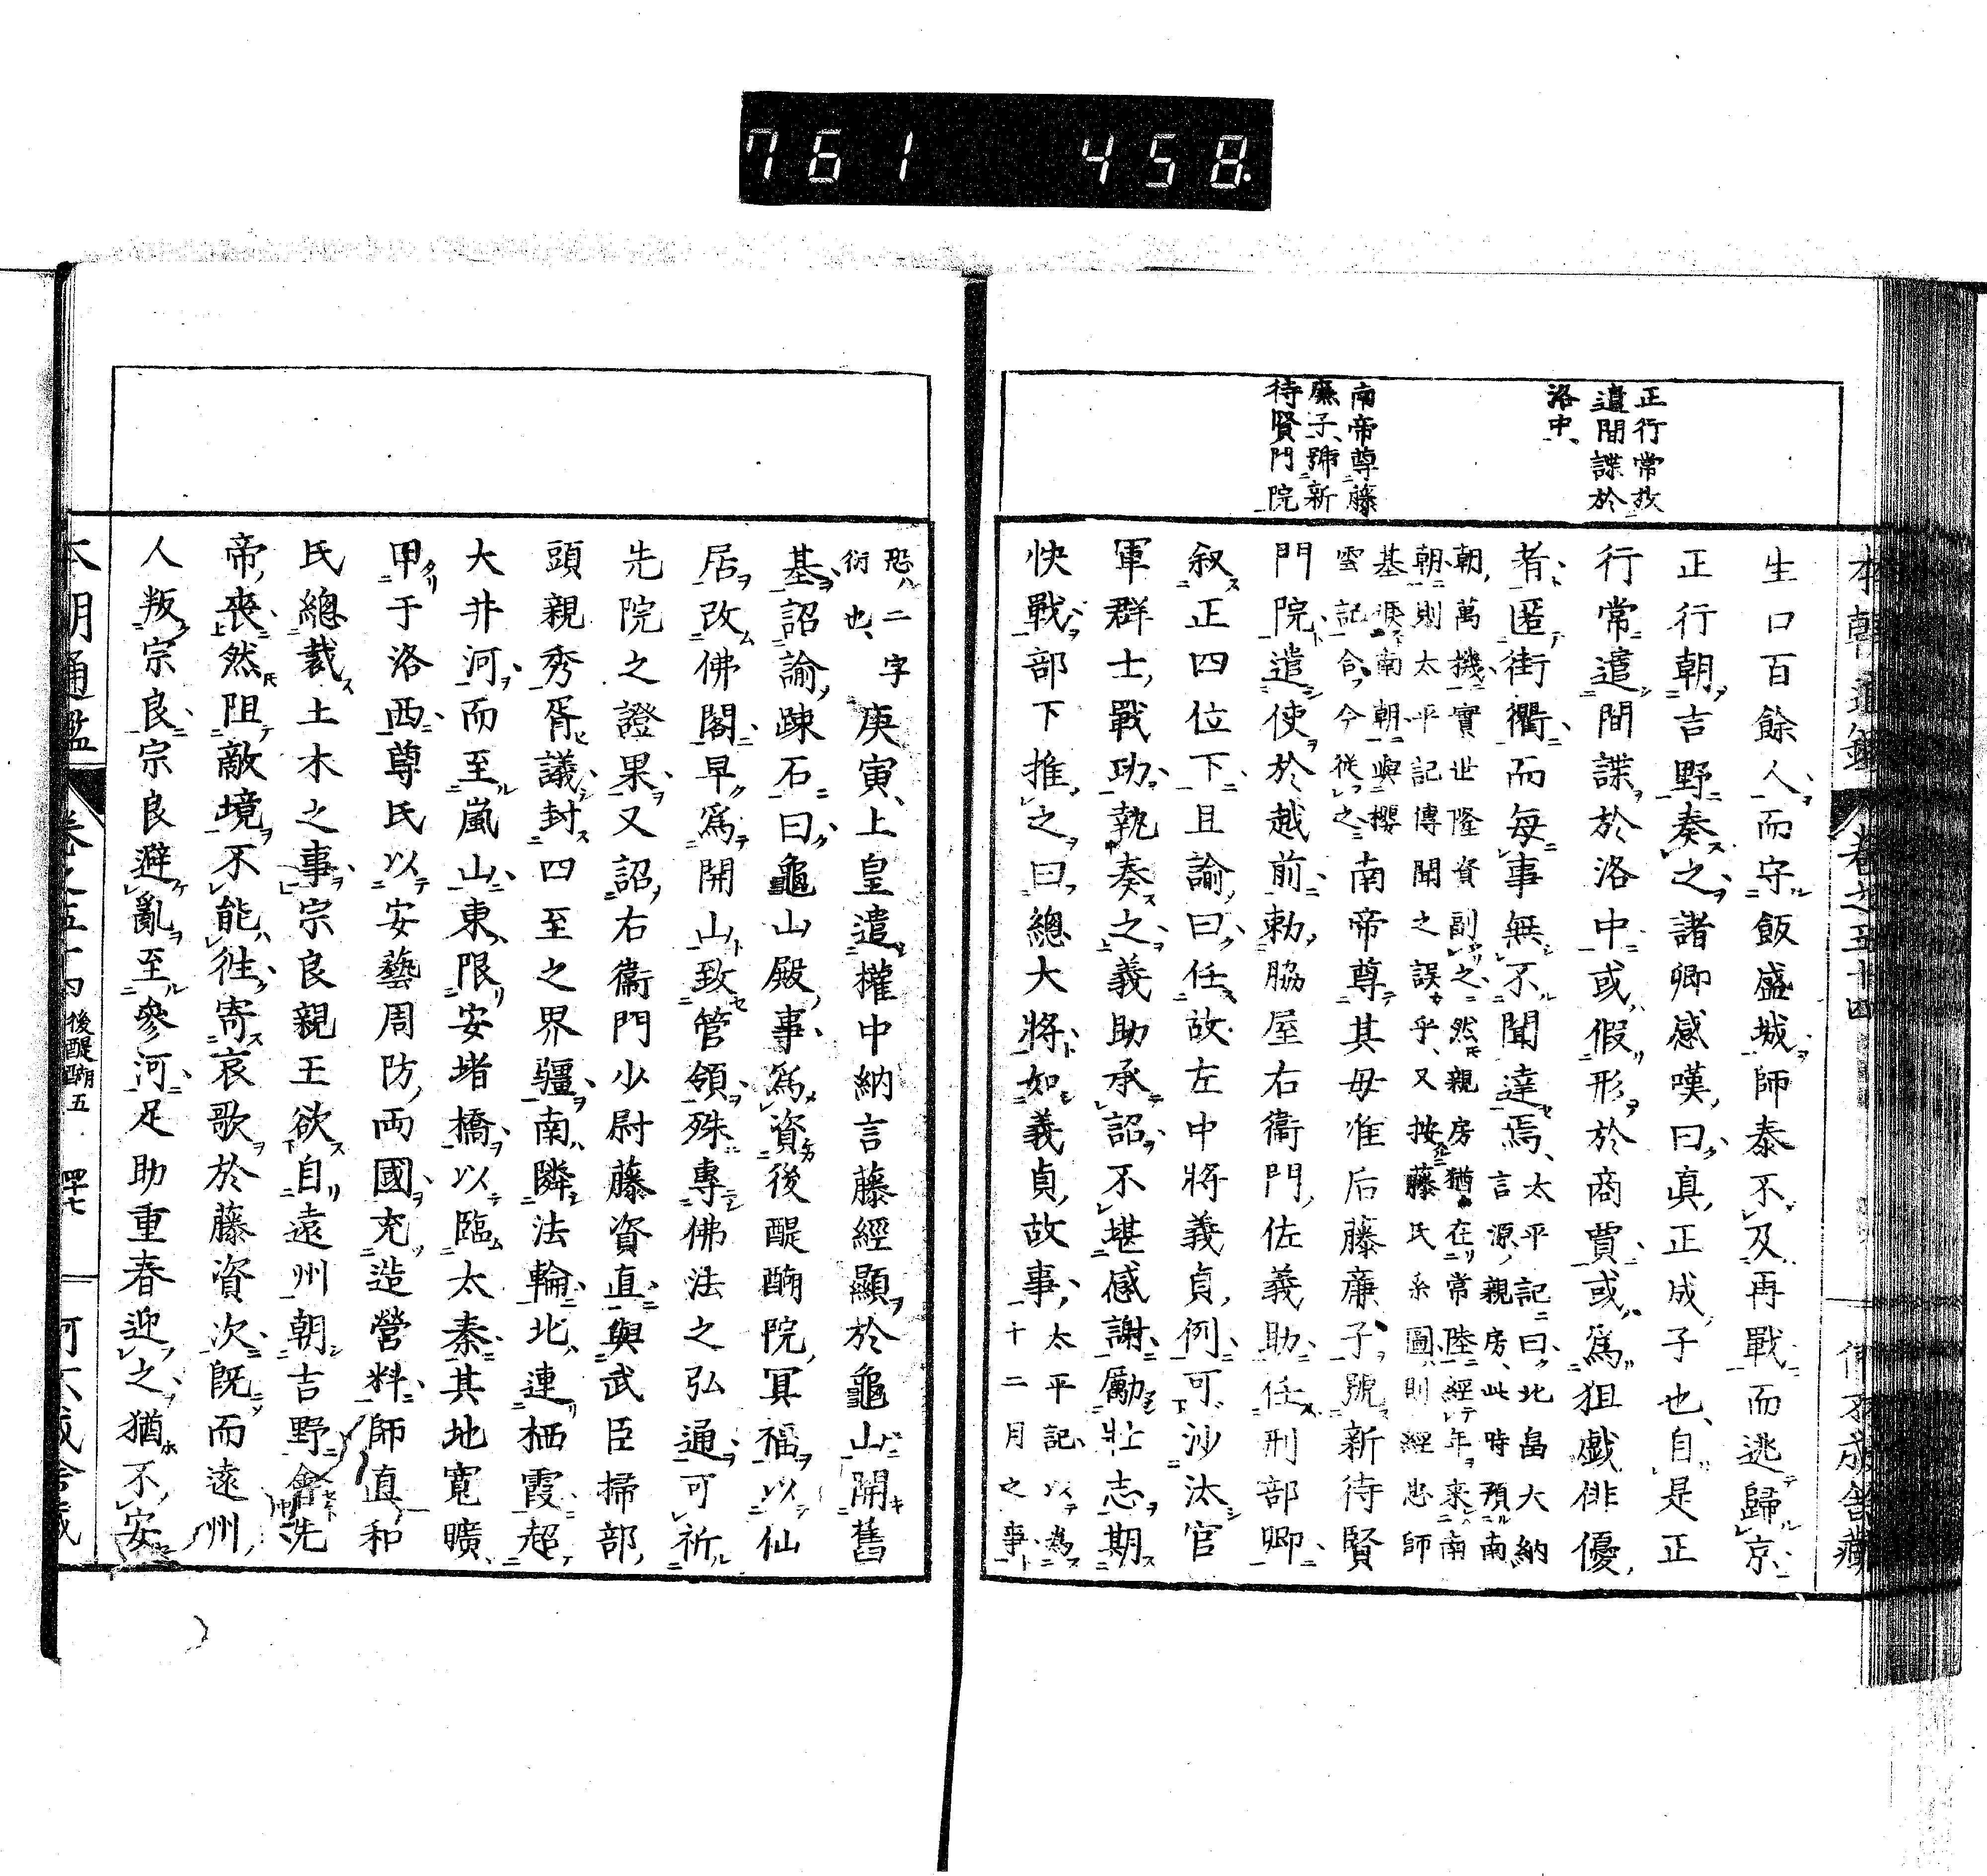 761 458.
正行常放
遣間諜於
洛中、
南帝尊藤
廉子、號新
待賢門院
生口百餘人、而守飯盛城、師泰不及再戰而逃歸京、
正行朝吉野奏之、諸卿感嘆曰、真正成子也、自是正
行常遣間諜於洛中、或假形於商賈、或爲狙戲俳優、
者匿街衢而每事無不聞達焉、
太平記曰、北畠大納
言源親房、此時預南
朝萬機、實世隆資副之、然親房猶在常陸經年來南
朝則太平記傳聞之誤乎、又按藤氏系圖、則經忠師
基源南朝與櫻
雲記合、今從之
南帝尊其母准后藤廉子、號新待賢
門院、遣使於越前、勅脇屋右衞門佐義助、任刑部卿、
叙正四位下、且諭曰、任故左中將義貞例、可沙汰官
軍群士、戰功執奏之、義助承詔、不堪感謝、勵壯志期
快戰、部下推之曰、總大將、如義貞故事、
太平記、以爲
十二月之事、
恐二字
衍也、
庚寅、上皇遣權中納言藤經顯於龜山開舊
基、詔諭疎石曰、龜山殿事、爲資後醍醐院冥福、以仙
居改佛閣、早爲開山致管領、殊專佛法之弘通、可祈
先院之證果、又詔右衞門少尉藤資直、與武臣掃部
頭親秀胥議、封四至之界疆、南隣法輪、北連栖霞、超
大井河而至嵐山、東限安堵橋、以臨太秦、其地寬曠、
甲于洛西、尊氏以安藝周防兩國、充造營料、師直和
氏總裁土木之事、宗良親王欲自遠州朝吉野、會先
帝喪、然阻敵境、不能往、寄哀歌於藤資次、既而遠州
人叛宗良、宗良避亂至參河、足助重春迎之、猶不安
本朝通鑑
後醍醐五
四十七